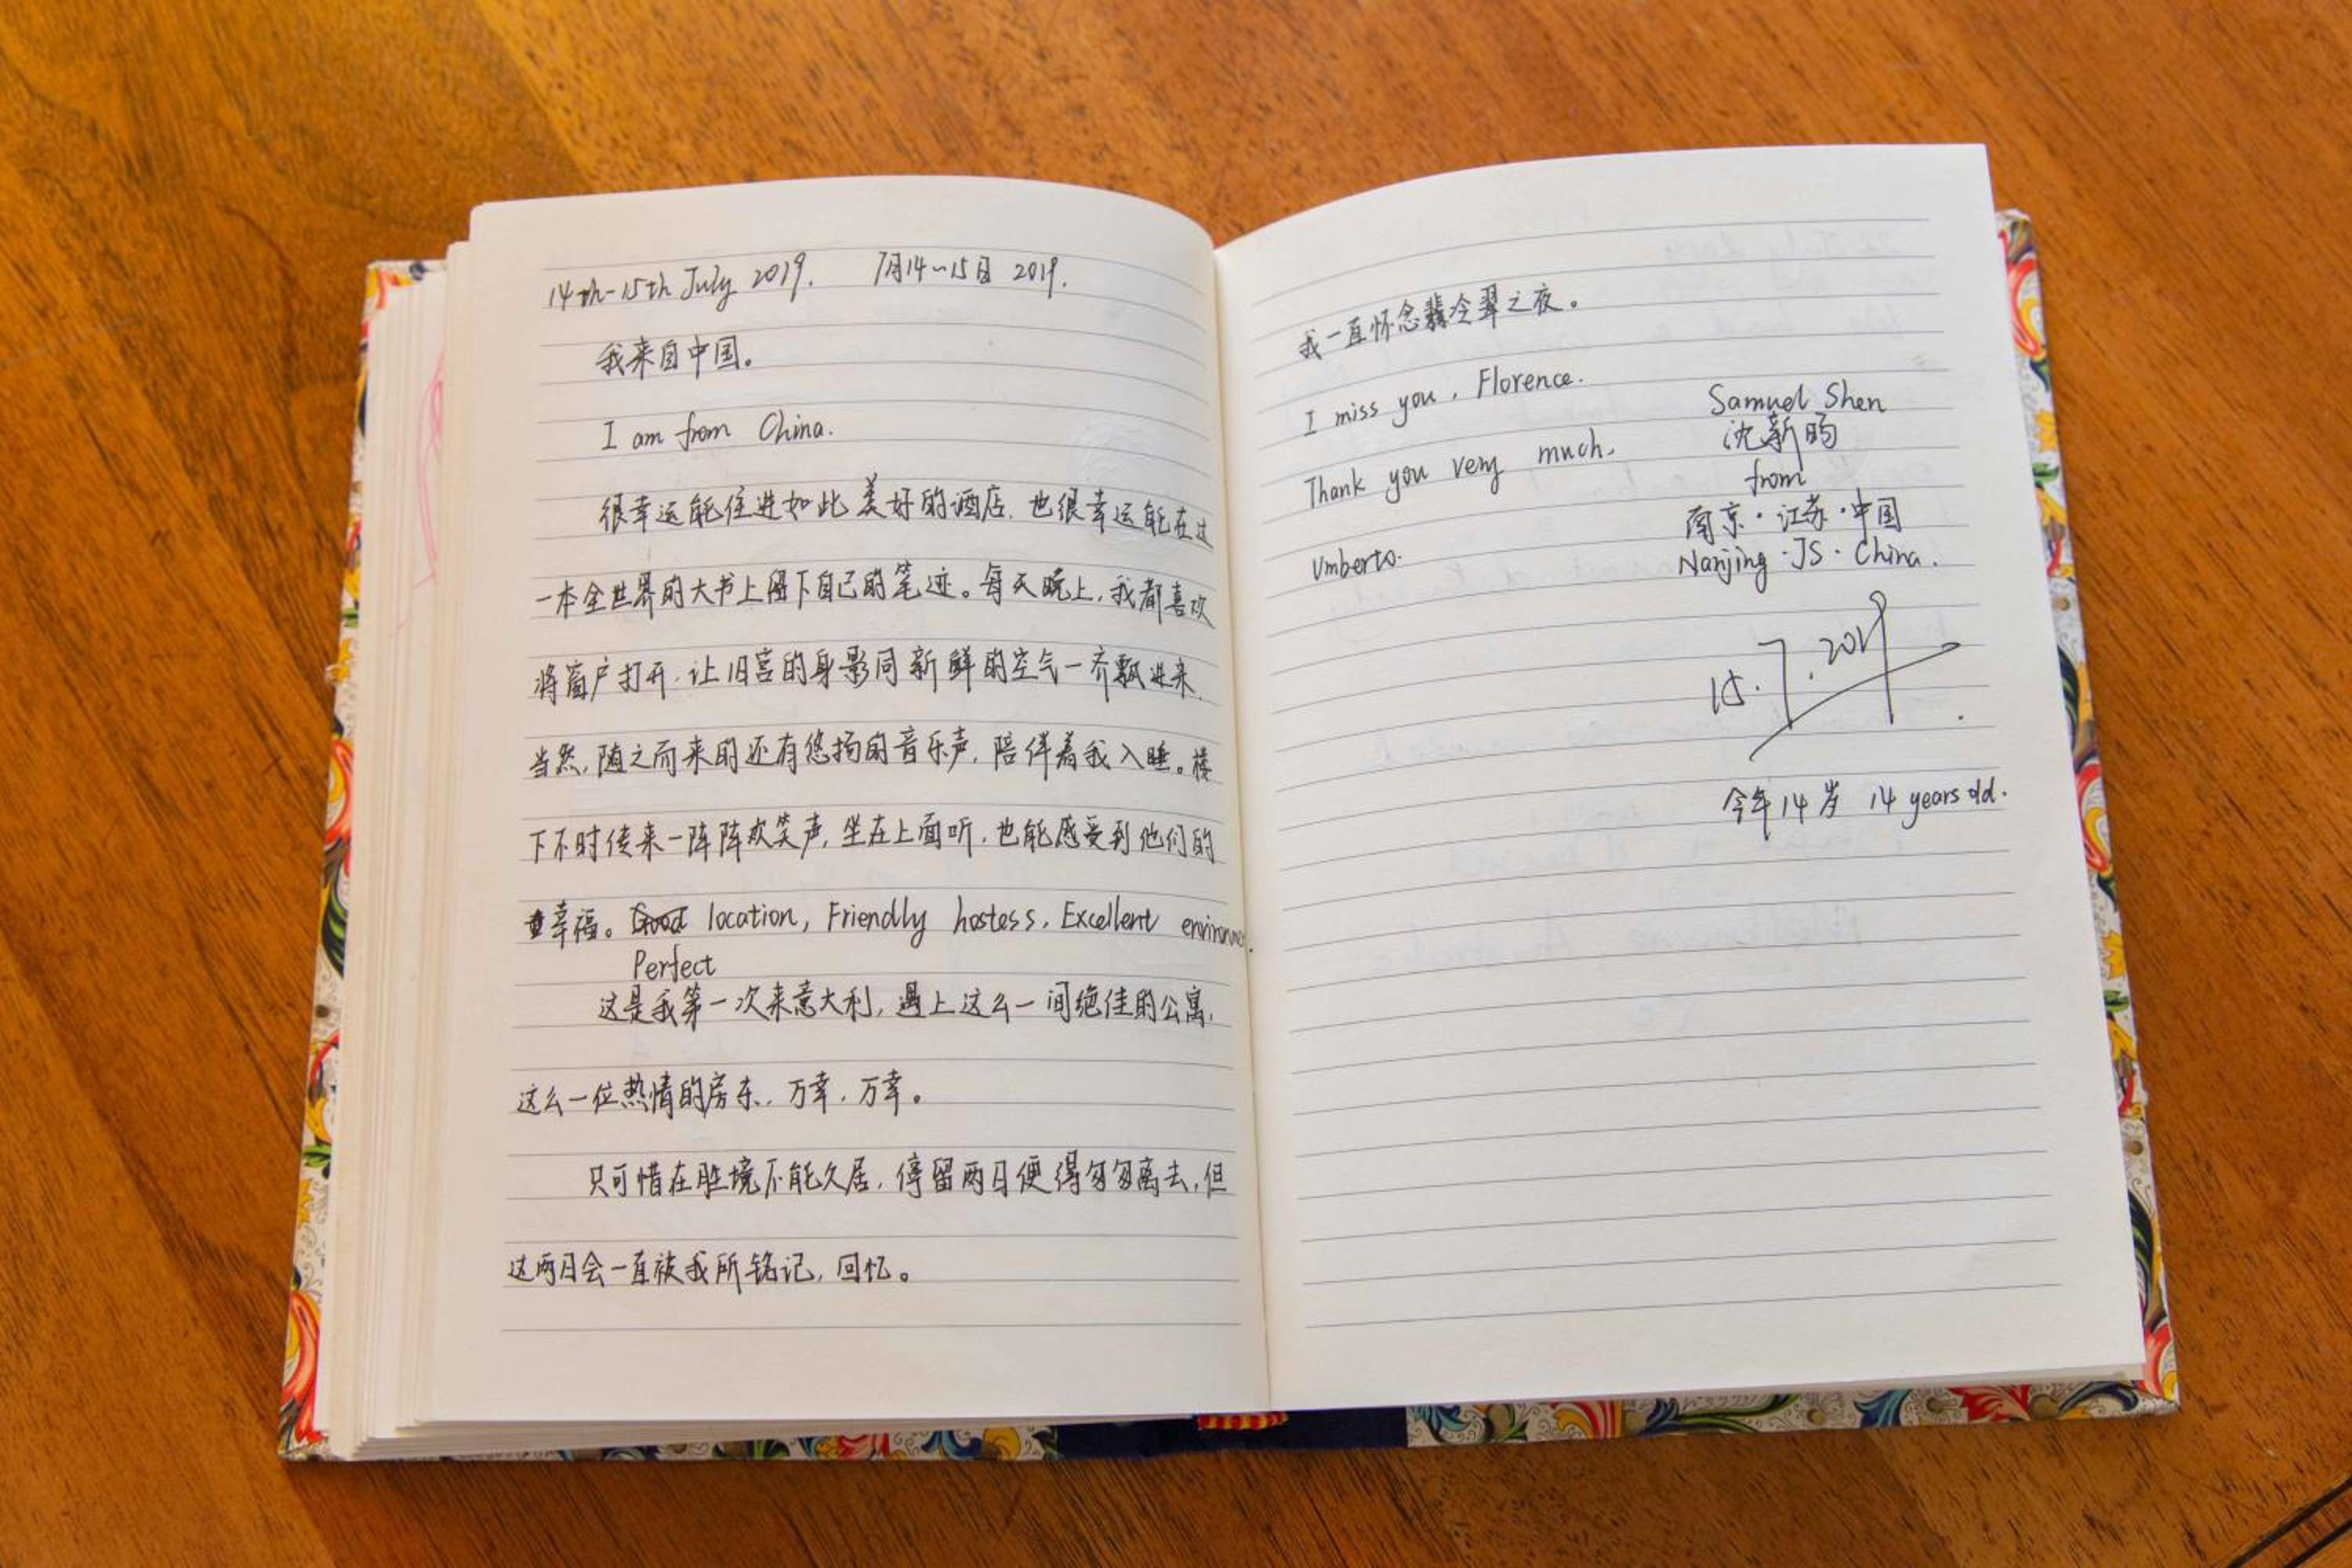 14th-15th July 2019. 7月14~15日 2019.
我来自中国。
I am from China.
很幸运能住进如此美好的酒店,也很幸运能在这
一本全世界的大书上留下自己的笔迹。每天晚上,我都喜欢
将窗户打开,让旧宫的身影同新鲜的空气一齐飘进来,
当然,随之而来的还有悠扬的音乐声,陪伴着我入睡。楼
下不时传来一阵阵欢笑声,坐在上面听,也能感受到他们的
幸福。Good location, Friendly hostess, Excellent environment.
Perfect
这是我第一次来意大利,遇上这么一间绝佳的公寓,
这么一位热情的房东,万幸,万幸。
只可惜在胜境不能久居,停留两日便得匆匆离去,但
这两日会一直被我所铭记,回忆。
我一直怀念翡冷翠之夜。
I miss you, Florence.
Thank you very much,
Umberto.
Samuel Shen
沈新昀
from
南京·江苏·中国
Nanjing·JS·China.
15.7.2019
今年14岁 14 years old.